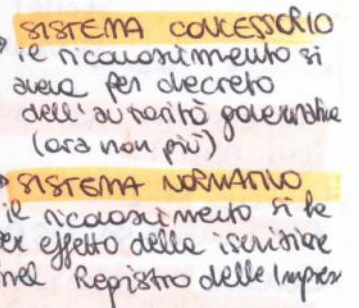 SISTEMA CONCESSORIO
il riconoscimento si
aveva per decreto
dell'autorità governativa
(ora non più)
SISTEMA NORMATIVO
il riconoscimento si ha
per effetto della iscrizione
nel Registro delle Impres